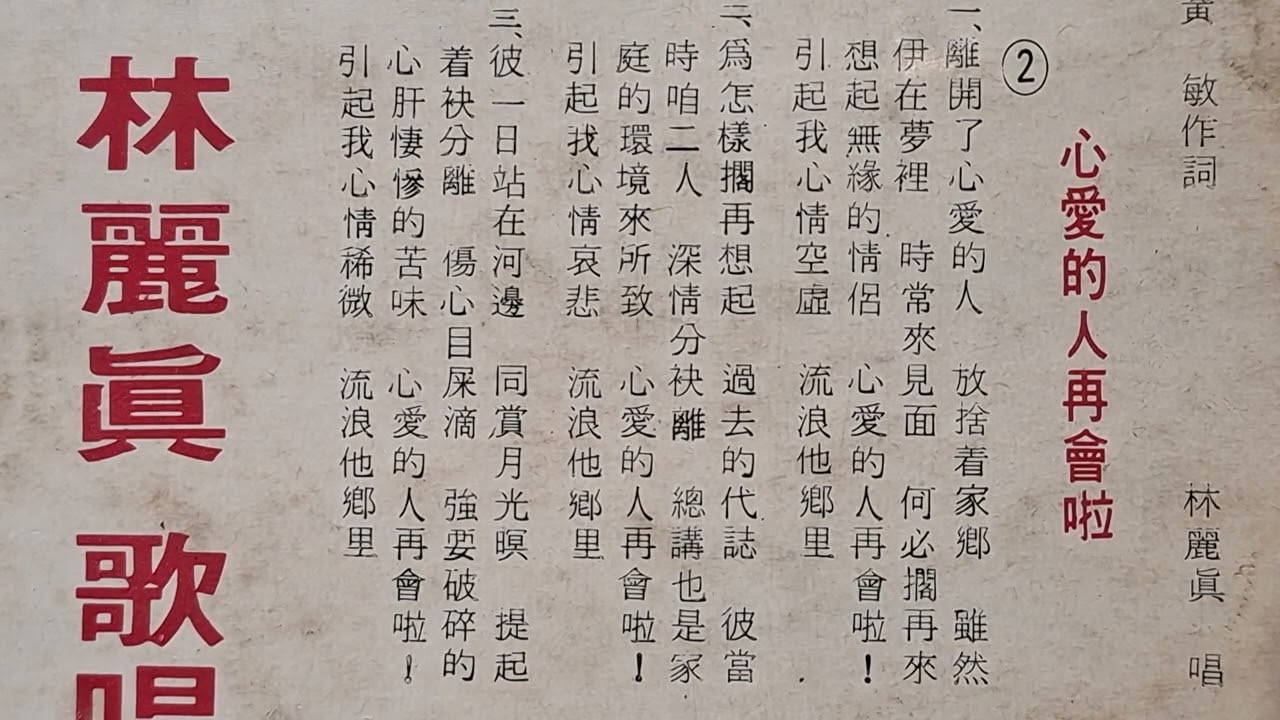 黃 敏作詞 林麗眞 唱
② 心愛的人再會啦
一、離開了心愛的人 放捨着家鄉 雖然
伊在夢裡 時常來見面 何必擱再來
想起無緣的情侶 心愛的人再會啦！
引起我心情空虛 流浪他鄉里
二、爲怎樣擱再想起 過去的代誌 彼當
時咱二人 深情分袂離 總講也是家
庭的環境來所致 心愛的人再會啦！
引起我心情哀悲 流浪他鄉里
三、彼一日站在河邊 同賞月光暝 提起
着袂分離 傷心目屎滴 強要破碎的
心肝悽慘的苦味 心愛的人再會啦！
引起我心情稀微 流浪他鄉里
林麗眞 歌唱